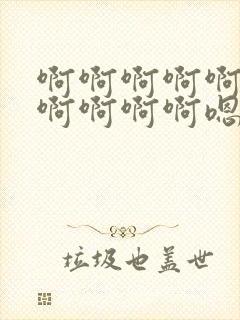 啊啊啊啊啊
啊啊啊啊嗯
垃圾也盖世